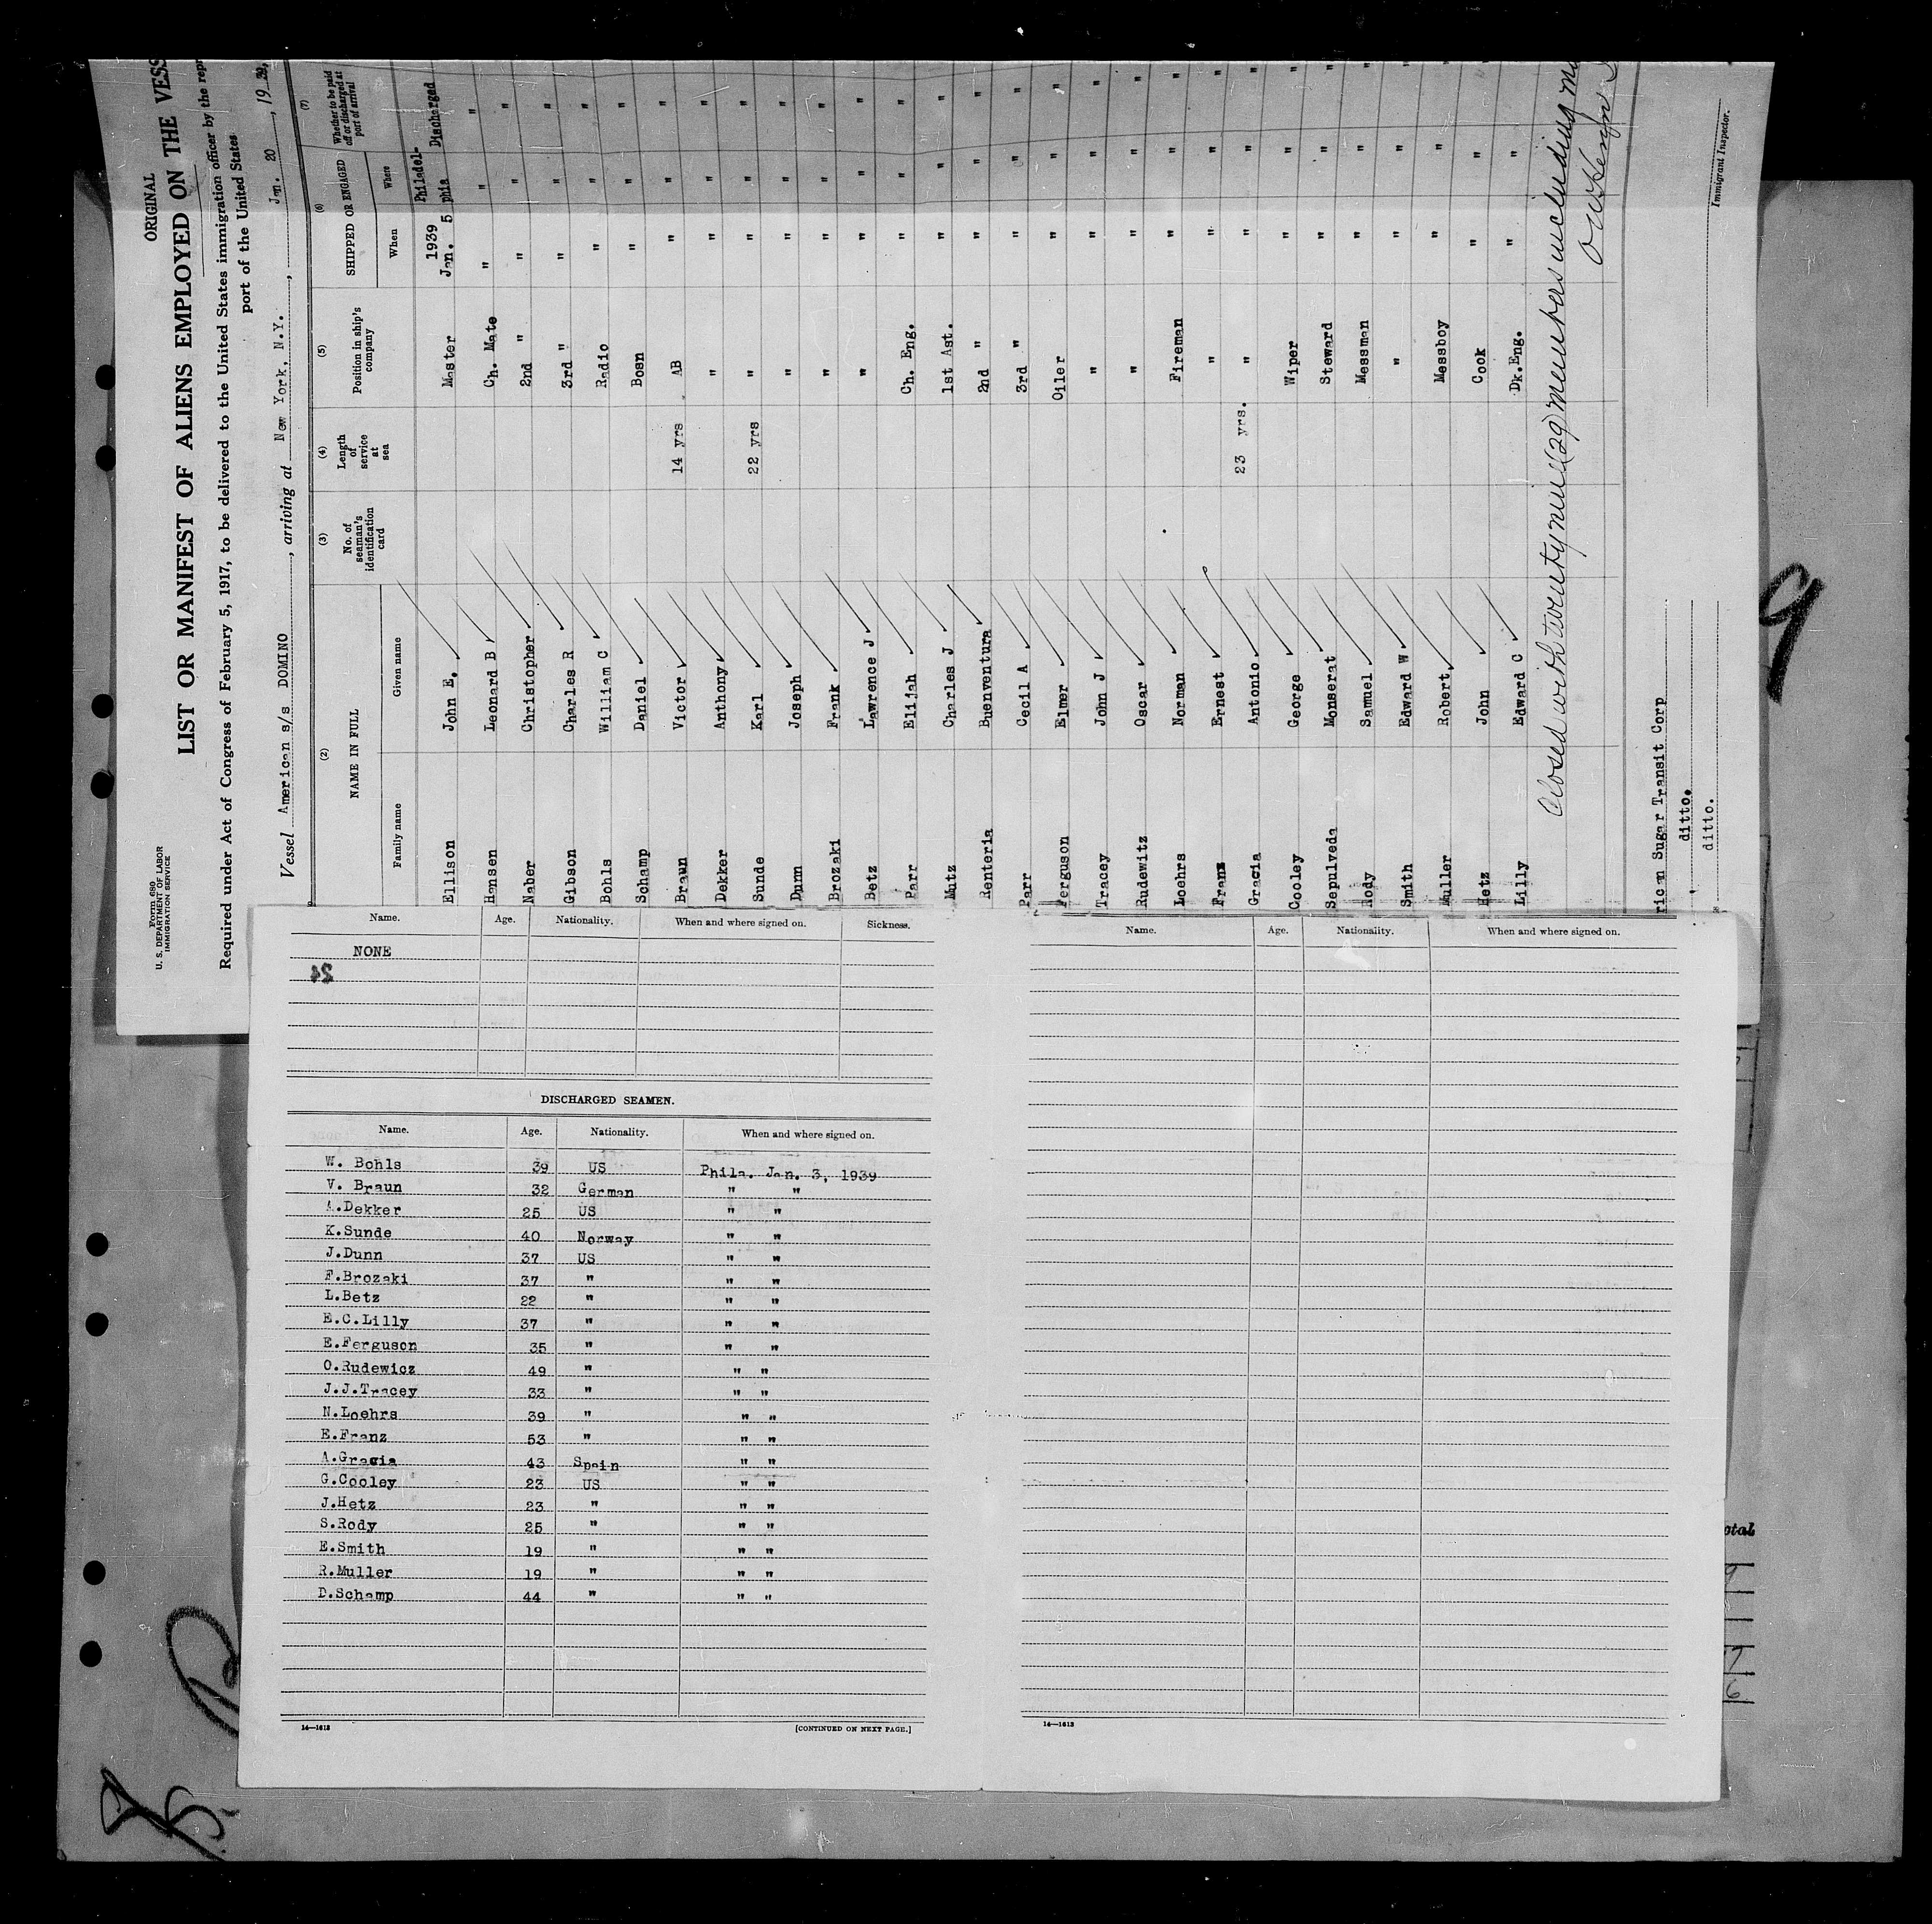 ORIGINAL
Form 680
U. S. DEPARTMENT OF LABOR
IMMIGRATION SERVICE
LIST OR MANIFEST OF ALIENS EMPLOYED ON THE VESS
Required under Act of Congress of February 5, 1917, to be delivered to the United States immigration officer by the repr
port of the United States
Vessel American s/s DOMINO, arriving at New York, N.Y., Jan. 20, 19
(2) (3) (4) (5) (6) (7)
NAME IN FULL No. of seaman's identification card Length of service at sea Position in ship's company SHIPPED OR ENGAGED Whether to be paid off or discharged at port of arrival
Family name Given name When Where
1939 Philadel-
Ellison John E. Master Jan. 5 phia Discharged
Hansen Leonard B Ch. Mate " " "
Naber Christopher 2nd " " " "
Gibson Charles R 3rd " " " "
Bohls William C Radio " " "
Schamp Daniel Bosn " " "
Braun Victor 14 yrs AB " " "
Dekker Anthony " " " "
Sunde Karl 22 yrs " " " "
Dunn Joseph " " " "
Brozaki Frank " " " "
Betz Lawrence J " " " "
Parr Elijah Ch. Eng. " " "
Mutz Charles J 1st Ast. " " "
Renteria Buenventura 2nd " " " "
Parr Cecil A 3rd " " " "
Ferguson Elmer Oiler " " "
Tracey John J " " " "
Rudewitz Oscar " " " "
Loehrs Norman Fireman " " "
Franz Ernest " " " "
Gracia Antonio 23 yrs. " " " "
Cooley George Wiper " " "
Sepulveda Monserat Steward " " "
Rody Samuel Messman " " "
Smith Edward W " " " "
Muller Robert Messboy " " "
Hetz John Cook " " "
Lilly Edward C Dk.Eng. " "
Closed with twenty nine (29) members including
rican Sugar Transit Corp
ditto.
ditto.
Immigrant Inspector.
9
Name. Age. Nationality. When and where signed on. Sickness.
NONE
24
DISCHARGED SEAMEN.
Name. Age. Nationality. When and where signed on.
W. Bohls 39 US Phila. Jan. 3, 1939
V. Braun 32 German " "
A.Dekker 25 US " "
K.Sunde 40 Norway " "
J.Dunn 37 US " "
F.Brozaki 37 " " "
L.Betz 22 " " "
E.C.Lilly 37 " " "
E.Ferguson 35 " " "
O.Rudewicz 49 " " "
J.J.Tracey 33 " " "
N.Loehrs 39 " " "
E.Franz 53 " " "
A.Gracia 43 Spain " "
G.Cooley 23 US " "
J.Hetz 23 " " "
S.Rody 25 " " "
E.Smith 19 " " "
R.Muller 19 " " "
D.Schamp 44 " " "
14—1613 [CONTINUED ON NEXT PAGE.]
Name. Age. Nationality. When and where signed on.
14—1613
otal
9
1
7
6